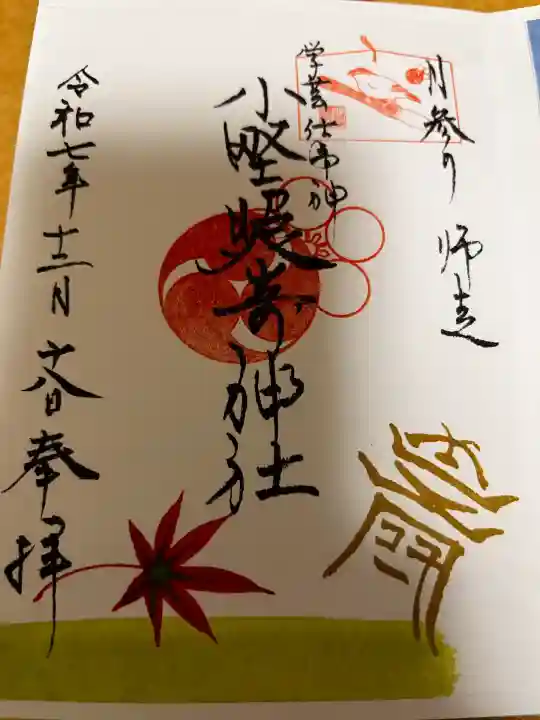 月参り 師走
学芸仕事神
小野照崎神社
令和七年十二月 奉拝